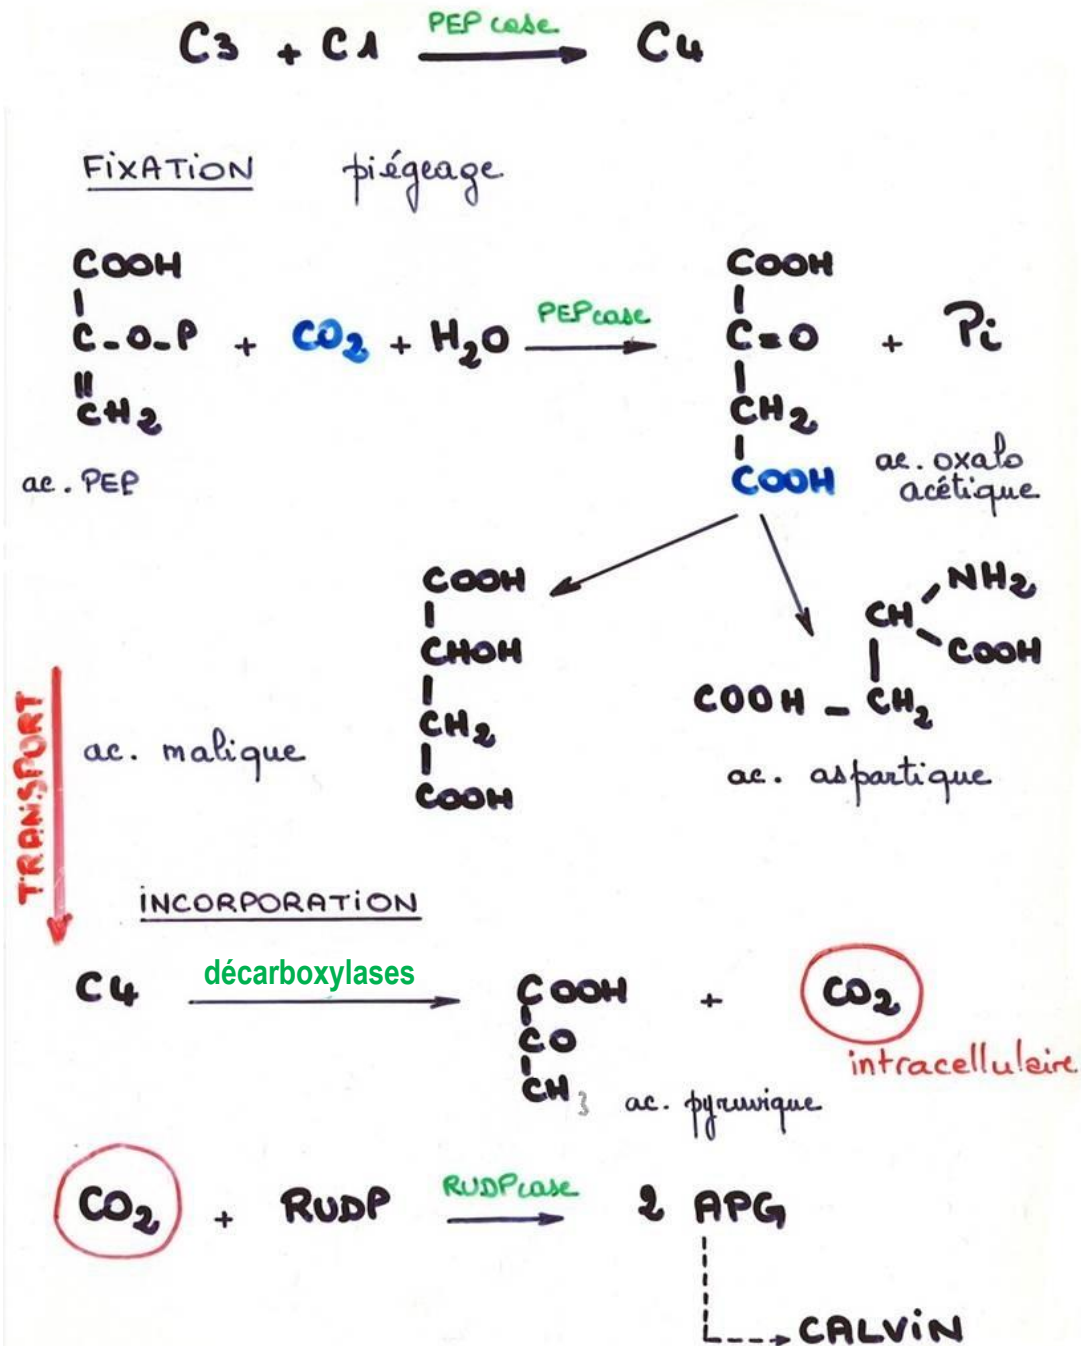 C3 + C1 PEP case C4
FIXATION piégeage
COOH
C-O-P + CO2 + H2O PEPcase
CH2
ac. PEP
COOH
C=O + Pi
CH2
COOH
ac. oxalo
acétique
COOH
CHOH
CH2
COOH
ac. malique
NH2
CH
COOH
COOH - CH2
ac. aspartique
TRANSPORT
INCORPORATION
C4 décarboxylases COOH + CO2
CO
CH3
ac. pyruvique
intracellulaire
CO2 + RUDP RUDPcase 2 APG
CALVIN